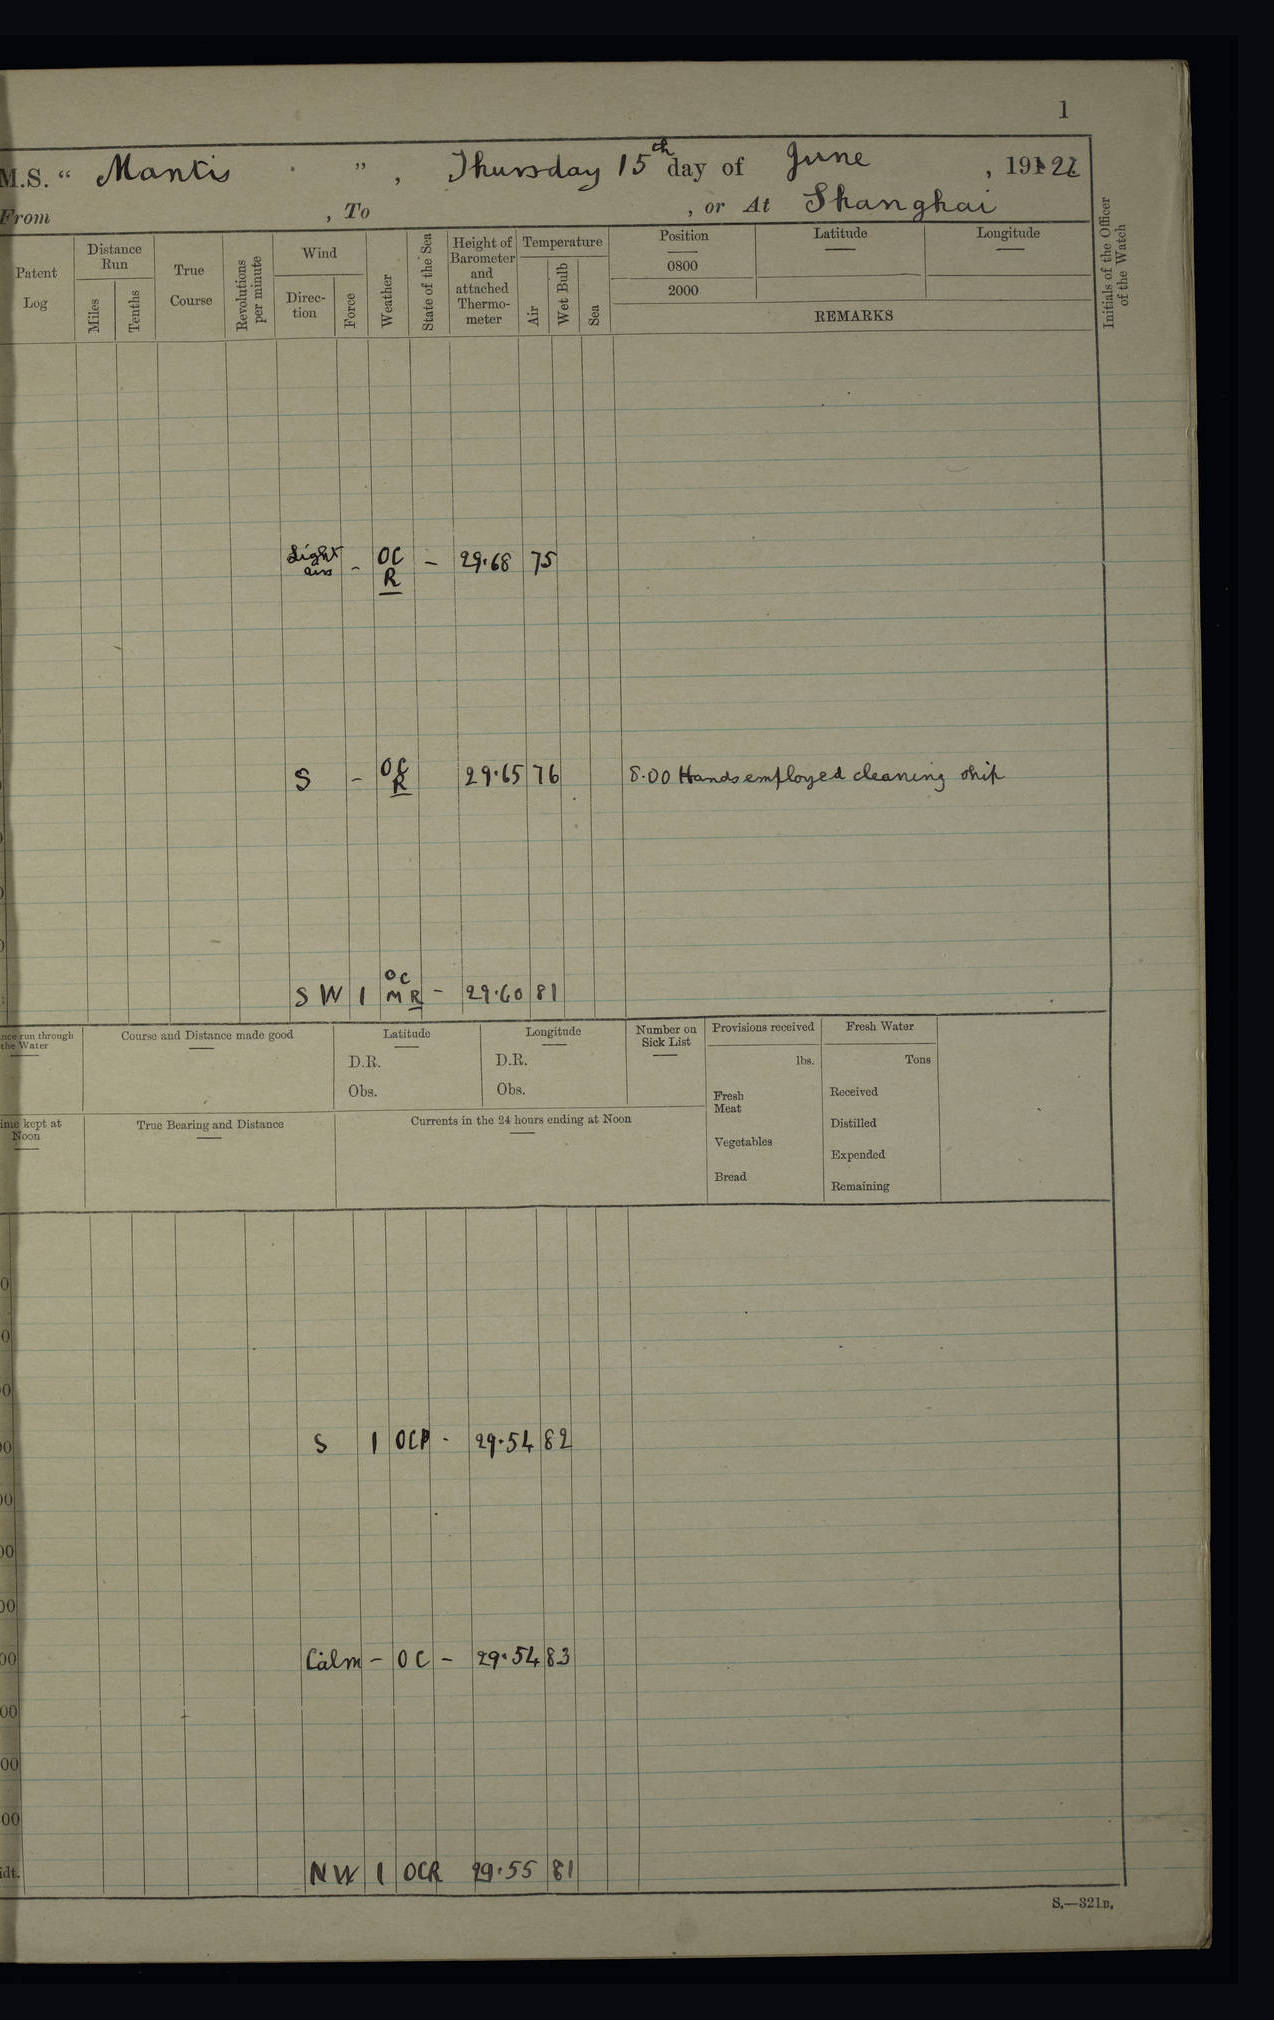 1
M.S. “ Mantis ” , Thursday 15th day of June , 1922
From , To , or At Shanghai
Patent Log
Distance Run
Miles
Tenths
True Course
Revolutions per minute
Wind
Direction
Force
Weather
State of the Sea
Height of Barometer and attached Thermometer
Temperature
Air
Wet Bulb
Sea
Position
0800
2000
Latitude
Longitude
REMARKS
Initials of the Officer of the Watch
Light airs - OC R - 29.68 75
S - OC R 29.65 76 8.00 Hands employed cleaning ship
SW 1 OC MR - 29.60 81
run through the Water
Course and Distance made good
Latitude
D.R.
Obs.
Longitude
D.R.
Obs.
Number on Sick List
Provisions received
lbs.
Fresh Meat
Vegetables
Bread
Fresh Water
Tons
Received
Distilled
Expended
Remaining
kept at Noon
True Bearing and Distance
Currents in the 24 hours ending at Noon
S 1 OCP - 29.54 82
Calm - OC - 29.54 83
NW 1 OCR 29.55 81
S.—321B.